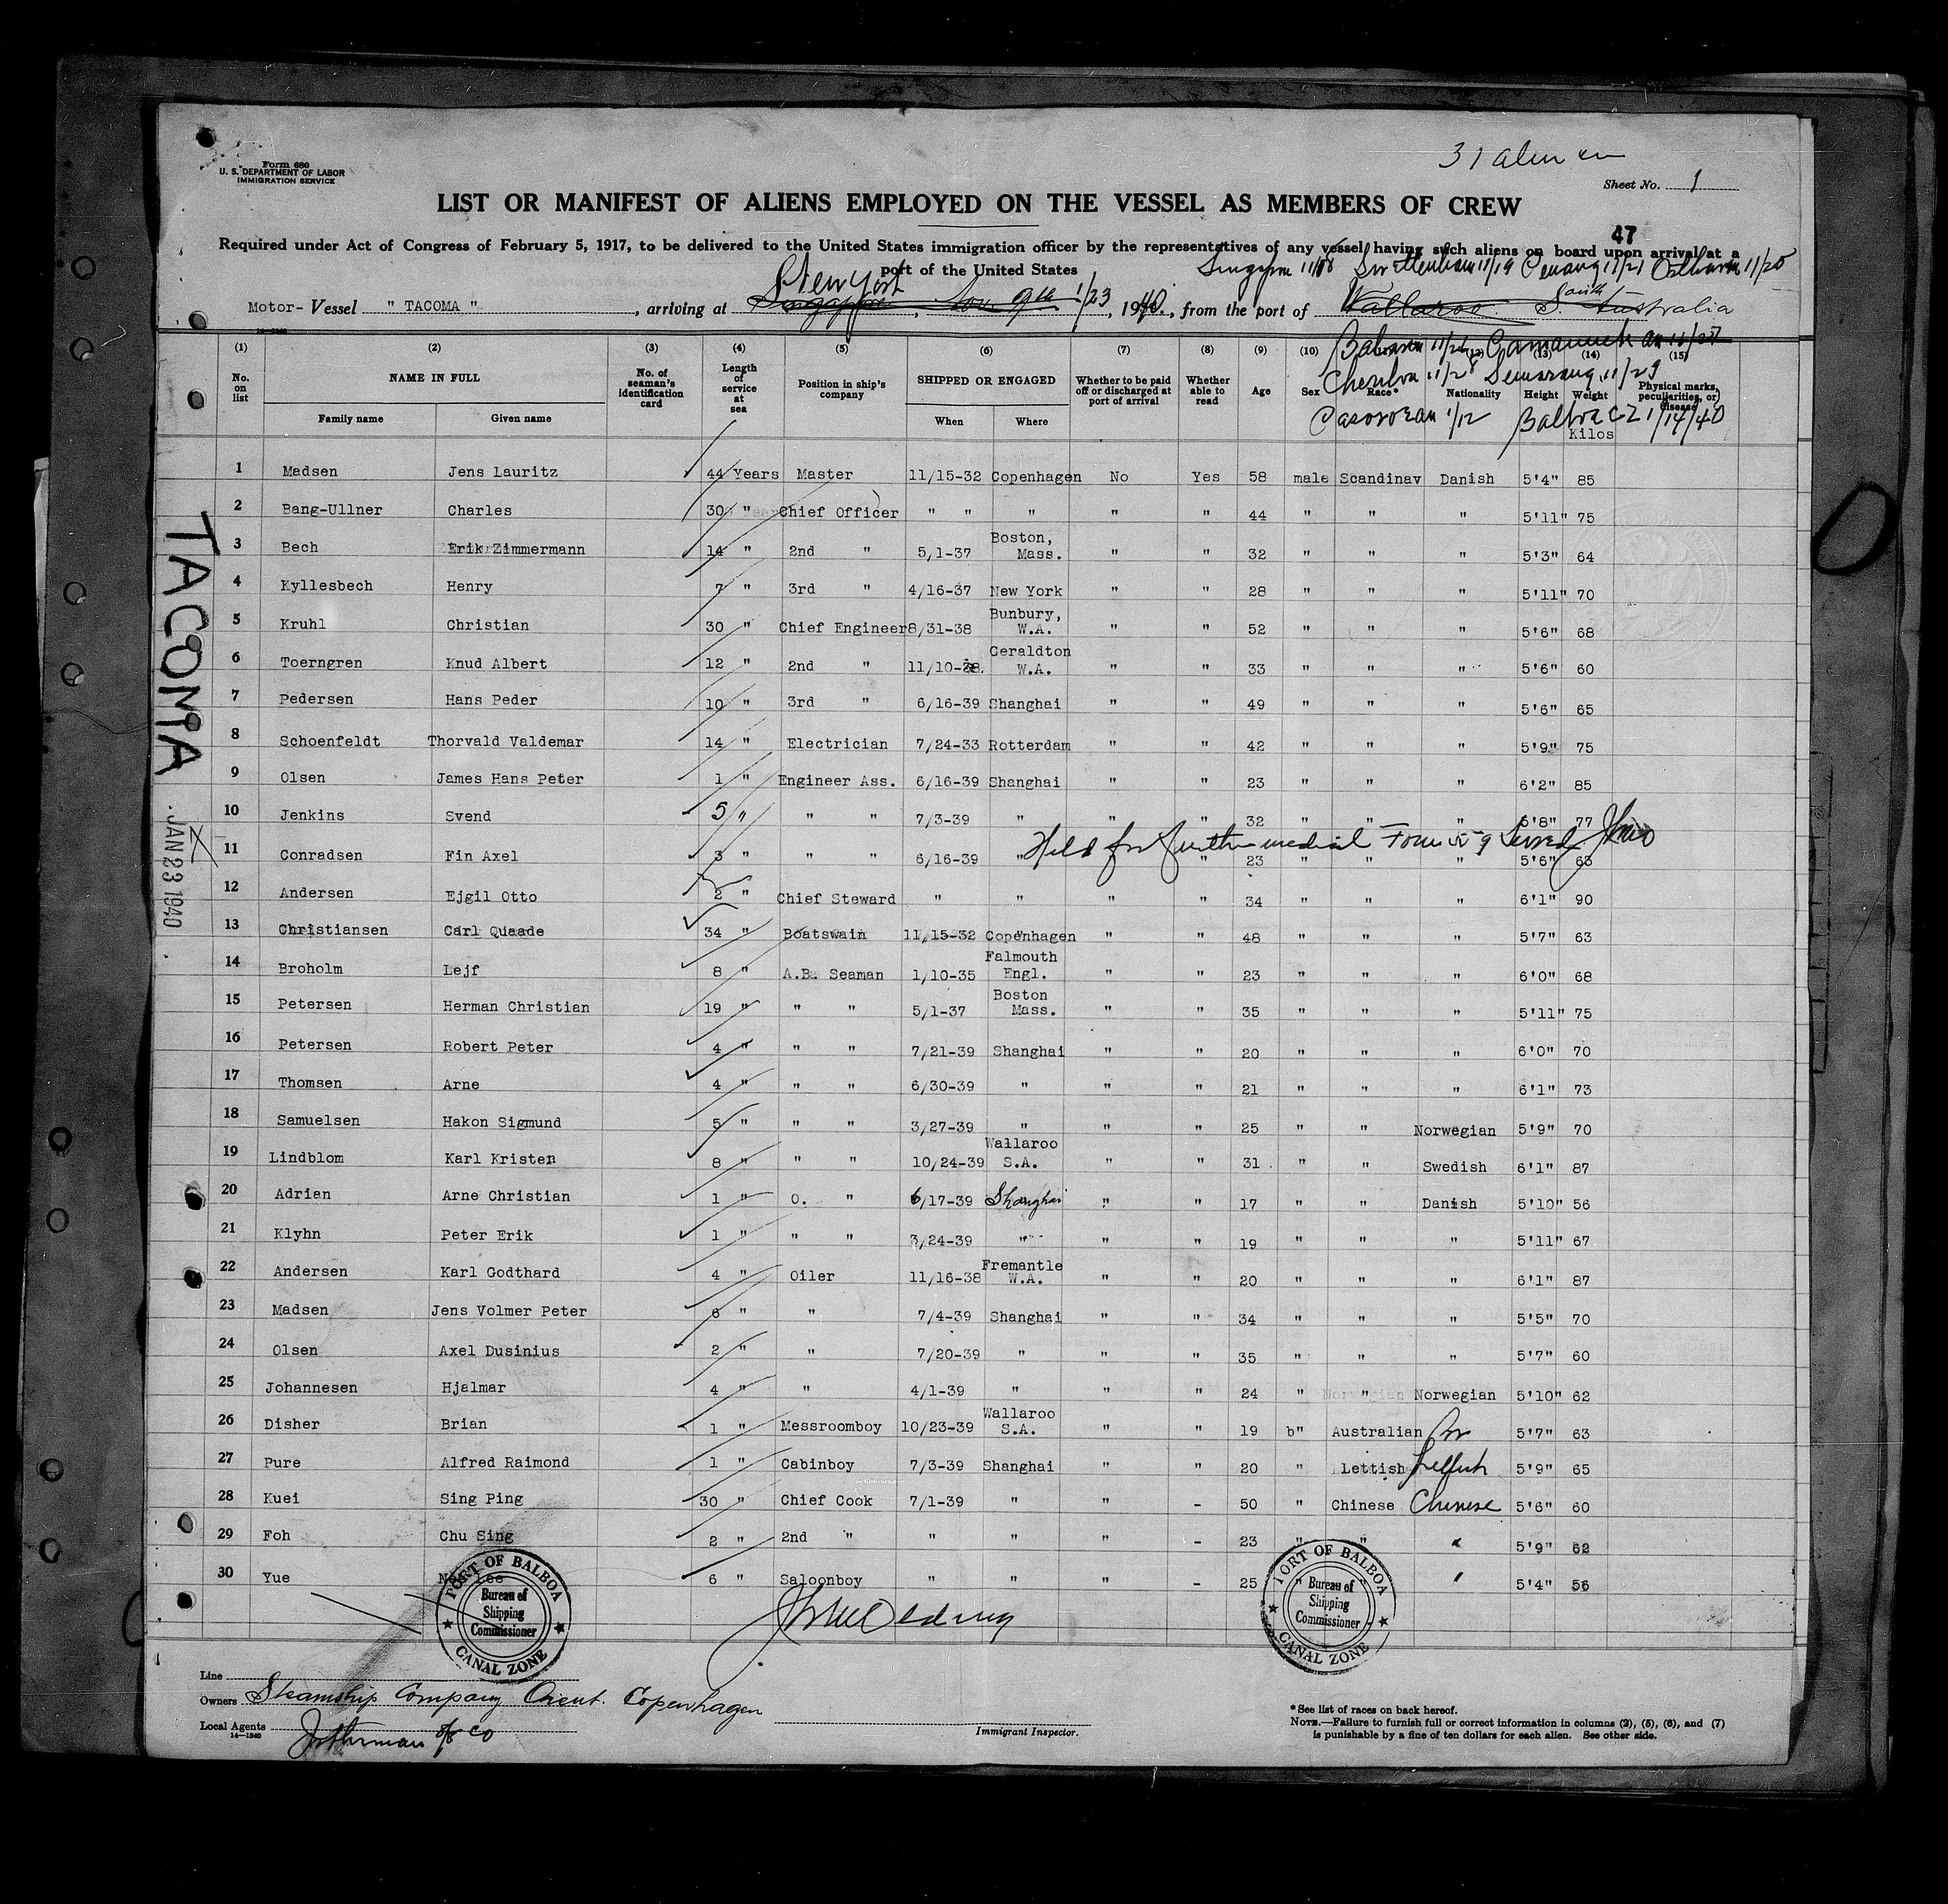 31 alien
Form 680
U. S. DEPARTMENT OF LABOR
IMMIGRATION SERVICE
Sheet No. 1
LIST OR MANIFEST OF ALIENS EMPLOYED ON THE VESSEL AS MEMBERS OF CREW
47
Required under Act of Congress of February 5, 1917, to be delivered to the United States immigration officer by the representatives of any vessel having such aliens on board upon arrival at a
port of the United States
11/18 Swettenham 11/19 Penang 11/21 11/25
New York
Motor- Vessel " TACOMA " , arriving at Singapore, Nov 9th 1/23, 1940, from the port of Wallaroo South S. Australia
14-1240
Balawan 11/26 11/27
Cheribon 11/28 Semarang 11/29
Pasoeroean 1/12 Balboa CZ 1/14/40
(1) (2) (3) (4) (5) (6) (7) (8) (9) (10) (12) (13) (14) (15)
No. on list NAME IN FULL No. of seaman's identification card Length of service at sea Position in ship's company SHIPPED OR ENGAGED Whether to be paid off or discharged at port of arrival Whether able to read Age Sex Race* Nationality Height Weight Physical marks, peculiarities, or disease
Family name Given name When Where Kilos
1 Madsen Jens Lauritz 44 Years Master 11/15-32 Copenhagen No Yes 58 male Scandinav Danish 5'4" 85
2 Bang-Ullner Charles 30 " Chief Officer " " " " " 44 " " " 5'11" 75
3 Bech Erik Zimmermann 14 " 2nd " 5/1-37 Boston, Mass. " " 32 " " " 5'3" 64
4 Kyllesbech Henry 7 " 3rd " 4/16-37 New York " " 28 " " " 5'11" 70
5 Kruhl Christian 30 " Chief Engineer 8/31-38 Bunbury, W.A. " " 52 " " " 5'6" 68
6 Toerngren Knud Albert 12 " 2nd " 11/10-38. Geraldton W.A. " " 33 " " " 5'6" 60
7 Pedersen Hans Peder 10 " 3rd " 6/16-39 Shanghai " " 49 " " " 5'6" 65
8 Schoenfeldt Thorvald Valdemar 14 " Electrician 7/24-33 Rotterdam " " 42 " " " 5'9" 75
9 Olsen James Hans Peter 1 " Engineer Ass. 6/16-39 Shanghai " " 23 " " " 6'2" 85
10 Jenkins Svend 5 " " " 7/3-39 " " " 32 " " " 6'8" 77
Held for further medical Form 559 Served
11 Conradsen Fin Axel 3 " " " 6/16-39 " " 23 " " " 5'6" 63
12 Andersen Ejgil Otto 2 " Chief Steward " " " " 34 " " " 6'1" 90
13 Christiansen Carl Quaade 34 " Boatswain 11/15-32 Copenhagen " " 48 " " " 5'7" 63
14 Broholm Lejf 8 " A.B. Seaman 1/10-35 Falmouth Engl. " " 23 " " " 6'0" 68
15 Petersen Herman Christian 19 " " " 5/1-37 Boston Mass. " " 35 " " " 5'11" 75
16 Petersen Robert Peter 4 " " " 7/21-39 Shanghai " " 20 " " " 6'0" 70
17 Thomsen Arne 4 " " " 6/30-39 " " " 21 " " " 6'1" 73
18 Samuelsen Hakon Sigmund 5 " " " 3/27-39 " " " 25 " " Norwegian 5'9" 70
19 Lindblom Karl Kristen 8 " " " 10/24-39 Wallaroo S.A. " " 31 " " Swedish 6'1" 87
20 Adrian Arne Christian 1 " O. " 6/17-39 Shanghai " " 17 " " Danish 5'10" 56
21 Klyhn Peter Erik 1 " " " 3/24-39 " " " 19 " " " 5'11" 67
22 Andersen Karl Godthard 4 " Oiler 11/16-38 Fremantle W.A. " " 20 " " " 6'1" 87
23 Madsen Jens Volmer Peter 6 " " 7/4-39 Shanghai " " 34 " " " 5'5" 70
24 Olsen Axel Dusinius 2 " " 7/20-39 " " " 35 " " " 5'7" 60
25 Johannesen Hjalmar 4 " " 4/1-39 " " " 24 " " Norwegian 5'10" 62
26 Disher Brian 1 " Messroomboy 10/23-39 Wallaroo S.A. " " 19 b" Australian Br 5'7" 63
27 Pure Alfred Raimond 1 " Cabinboy 7/3-39 Shanghai " " 20 " Lettish Lettish 5'9" 65
28 Kuei Sing Ping 30 " Chief Cook 7/1-39 " " - 50 " Chinese Chinese 5'6" 60
29 Foh Chu Sing 2 " 2nd " " " " - 23 " " " 5'9" 62
30 Yue Lee 6 " Saloonboy " " " - 25 " " " 5'4" 56
PORT OF BALBOA Bureau of Shipping Commissioner CANAL ZONE
PORT OF BALBOA Bureau of Shipping Commissioner CANAL ZONE
Line
Owners Steamship Company Orient. Copenhagen
Local Agents & Co
14-1240
Immigrant Inspector.
*See list of races on back hereof.
NOTE.—Failure to furnish full or correct information in columns (2), (5), (6), and (7)
is punishable by a fine of ten dollars for each alien. See other side.
TACOMA
JAN 23 1940